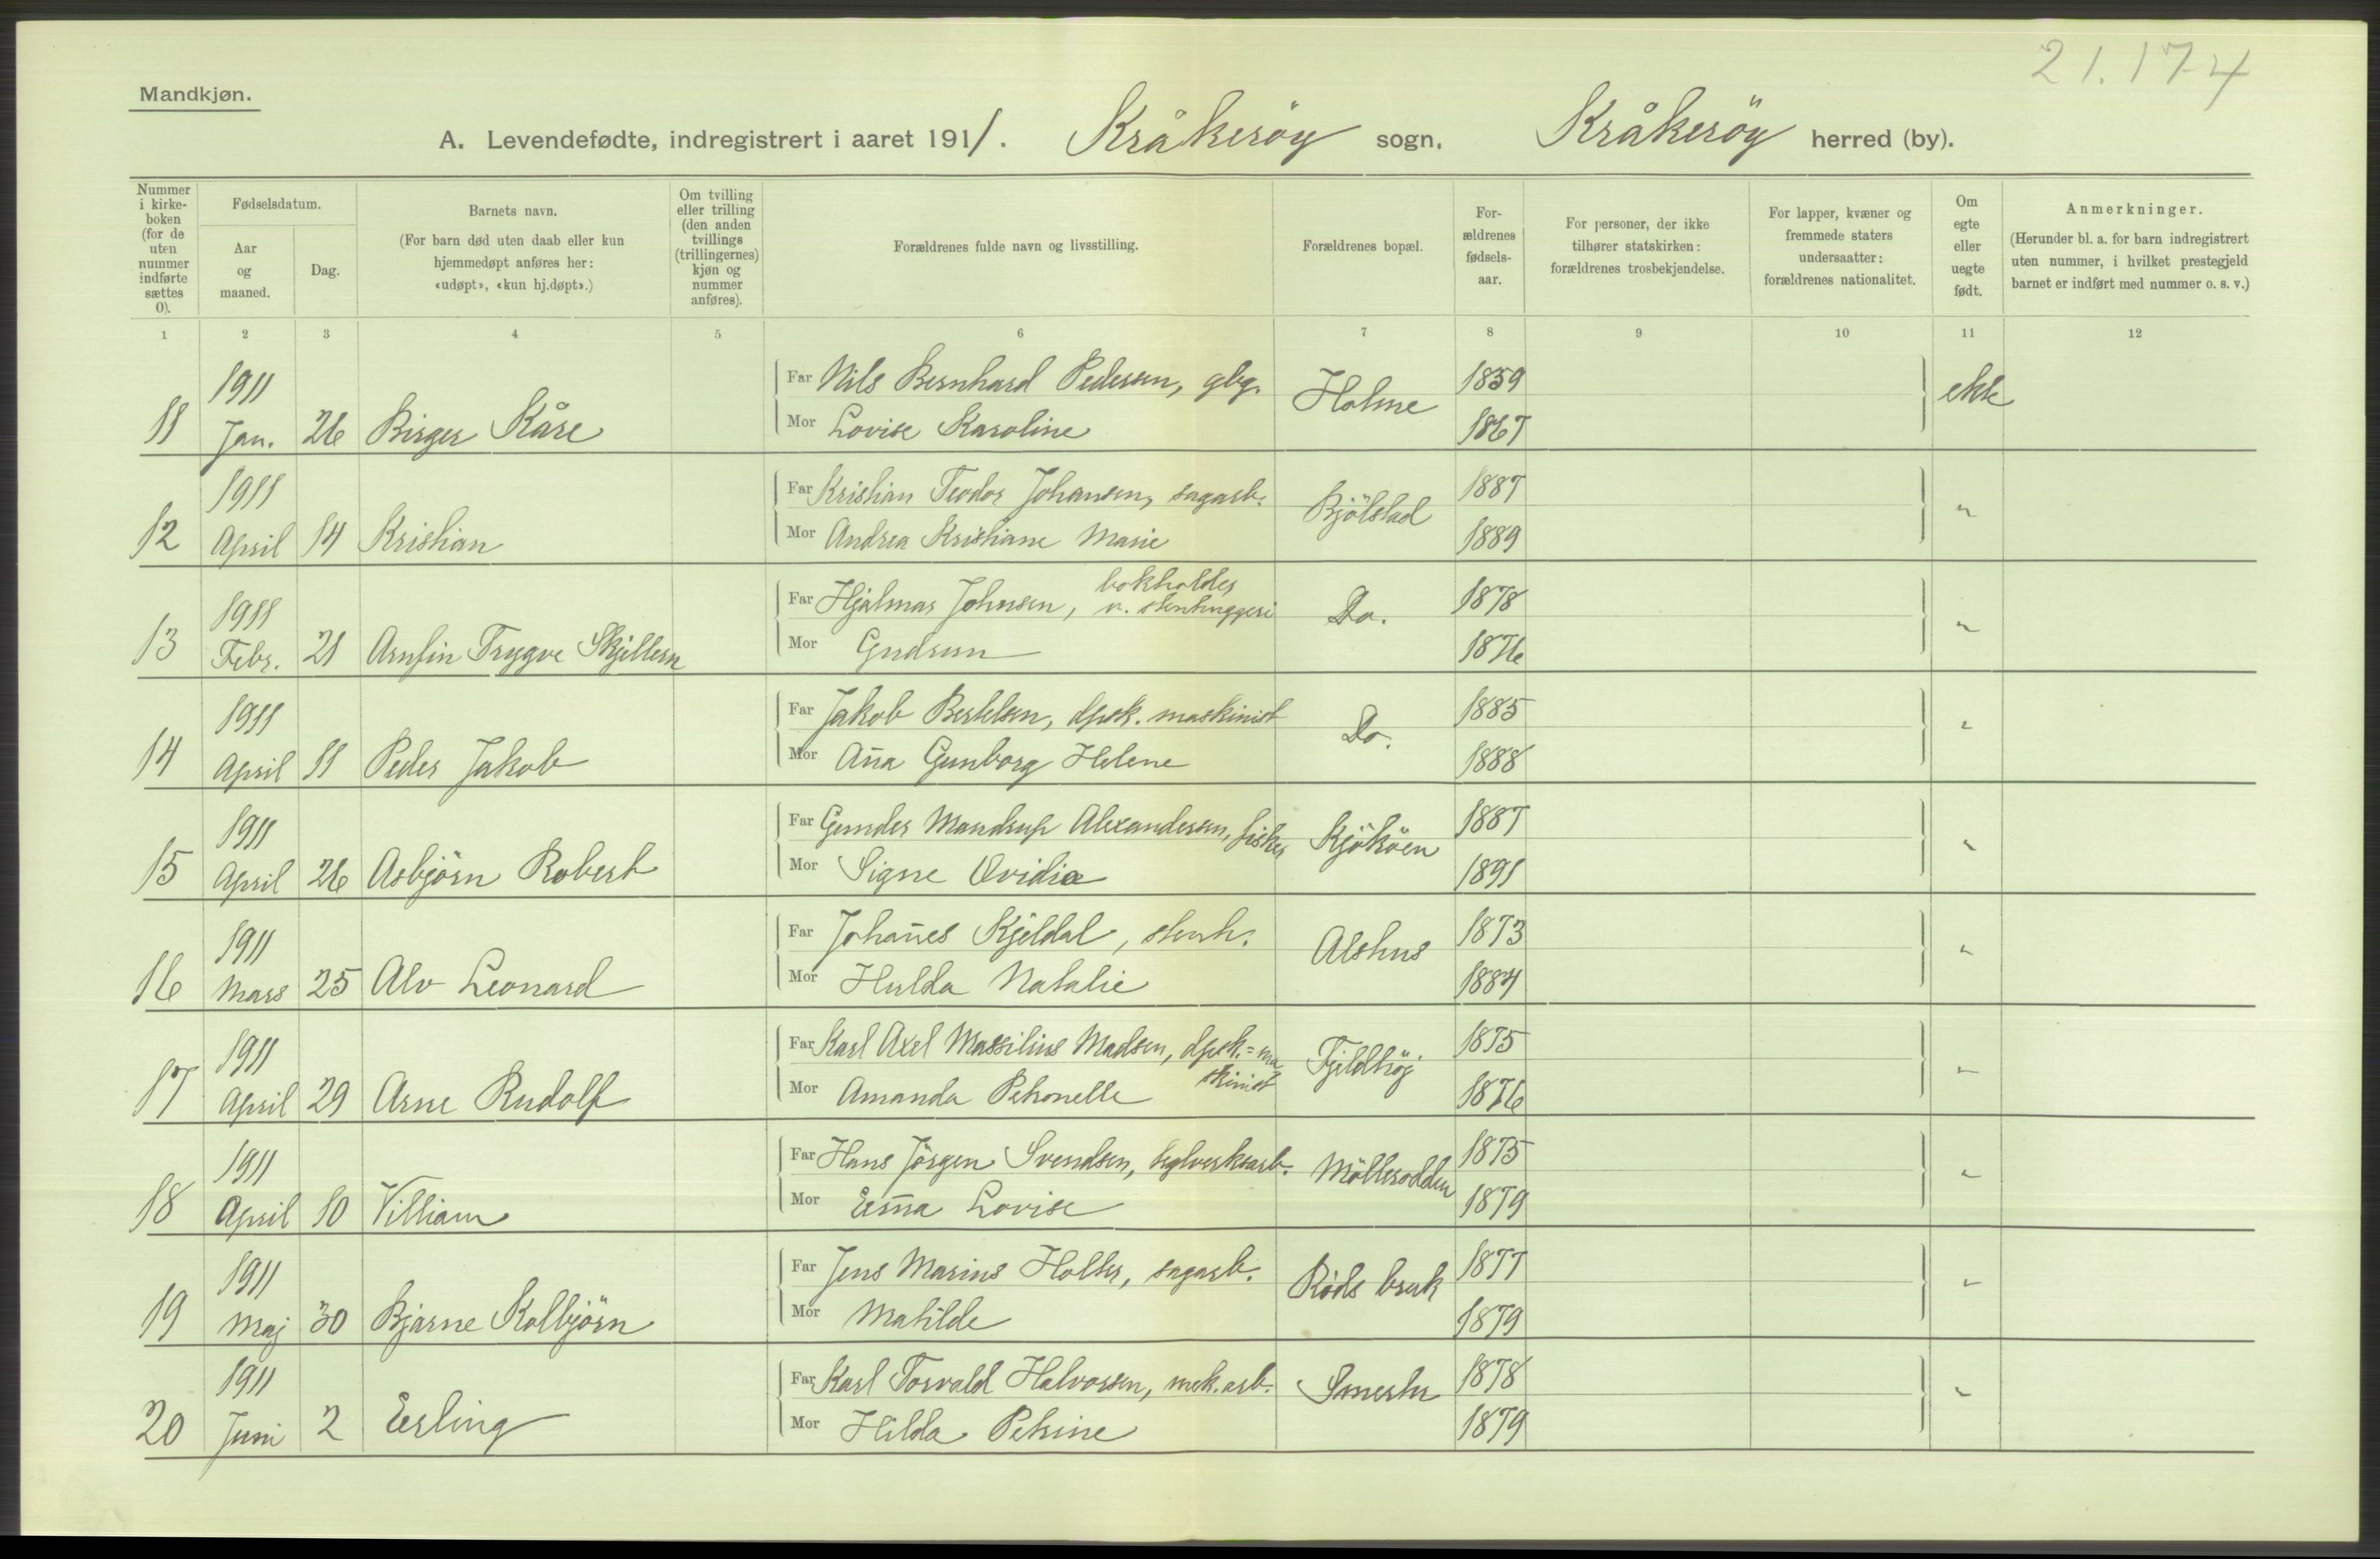 21.174
Mandkjøn.
A. Levendefødte, indregistrert i aaret 1911. Kråkeröy sogn, Kråkeröy herred (by).
Nummer i kirke-boken (for de uten nummer indførte sættes 0).
Fødselsdatum.
Aar og maaned.
Dag.
Barnets navn.
(For barn død uten daab eller kun hjemmedøpt anføres her: «udøpt», «kun hj.døpt».)
Om tvilling eller trilling (den anden tvillings (trillingernes) kjøn og nummer anføres).
Forældrenes fulde navn og livsstilling.
Forældrenes bopæl.
For-ældrenes fødsels-aar.
For personer, der ikke tilhører statskirken: forældrenes trosbekjendelse.
For lapper, kvæner og fremmede staters undersaatter: forældrenes nationalitet.
Om egte eller uegte født.
Anmerkninger.
(Herunder bl. a. for barn indregistrert uten nummer, i hvilket prestegjeld barnet er indført med nummer o. s. v.)
1 2 3 4 5 6 7 8 9 10 11 12
11 1911 Jan. 26 Birger Kåre Far Nils Bernhard Pedersen, gbg. Holme 1859 ekte
Mor Lovise Karoline 1867
12 1911 April 14 Kristian Far Kristian Teodor Johansen, sagarb. Bjölstad 1887 "
Mor Andrea Kristiane Marie 1889
13 1911 Febr. 21 Arnfin Trygve Skjellern Far Hjalmar Johnsen, bokholder v. stenhuggeri Do. 1878 "
Mor Gudrun 1876
14 1911 April 11 Peder Jakob Far Jakob Bertelsen, dpsk. maskinist Do. 1885 "
Mor Ana Gunborg Helene 1888
15 1911 April 26 Asbjörn Robert Far Gunder Mandrup Alexandersen, fisker Kjököen 1887 "
Mor Signe Ovidia 1891
16 1911 Mars 25 Alv Leonard Far Johanes Kjeldal, stenh. Alshus 1873 "
Mor Hulda Natalie 1884
17 1911 April 29 Arne Rudolf Far Karl Axel Massilius Madsen, dpsk.=maskinist Fjeldhög 1875 "
Mor Amanda Petronelle 1876
18 1911 April 10 Villiam Far Hans Jörgen Svendsen, teglverksarb. Möllerodden 1875 "
Mor Ema Lovise 1879
19 1911 Maj 30 Bjarne Kolbjörn Far Jens Marius Holter, sagarb. Röds bruk 1877 "
Mor Matilde 1879
20 1911 Juni 2 Erling Far Karl Torvald Halvorsen, mek. arb. 1878 "
Mor Hilda Petrine 1879